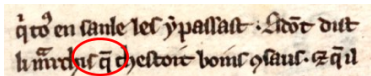 q̃ toꝰ en saule les ẏ passast · Lidõt dist
li mãrchis q̃ chestoit boins ꝯsaus · ⁊ q̃ il